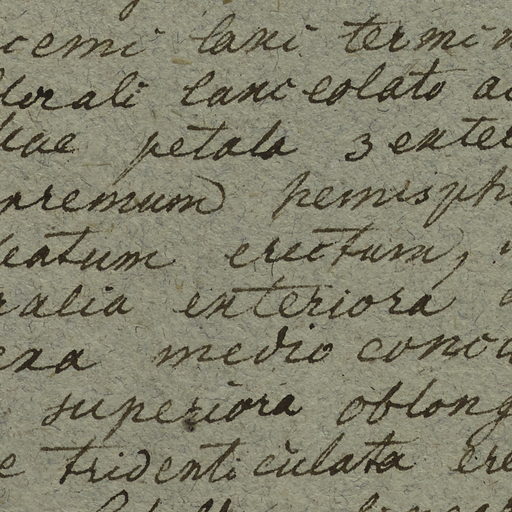 cemi laxi termin
florali lanceolato ac
petala 3 exter
premum hemisph
eatum erectum,
ralia exteriora
exa medio conca
superiora oblong
e tridenticulata ere